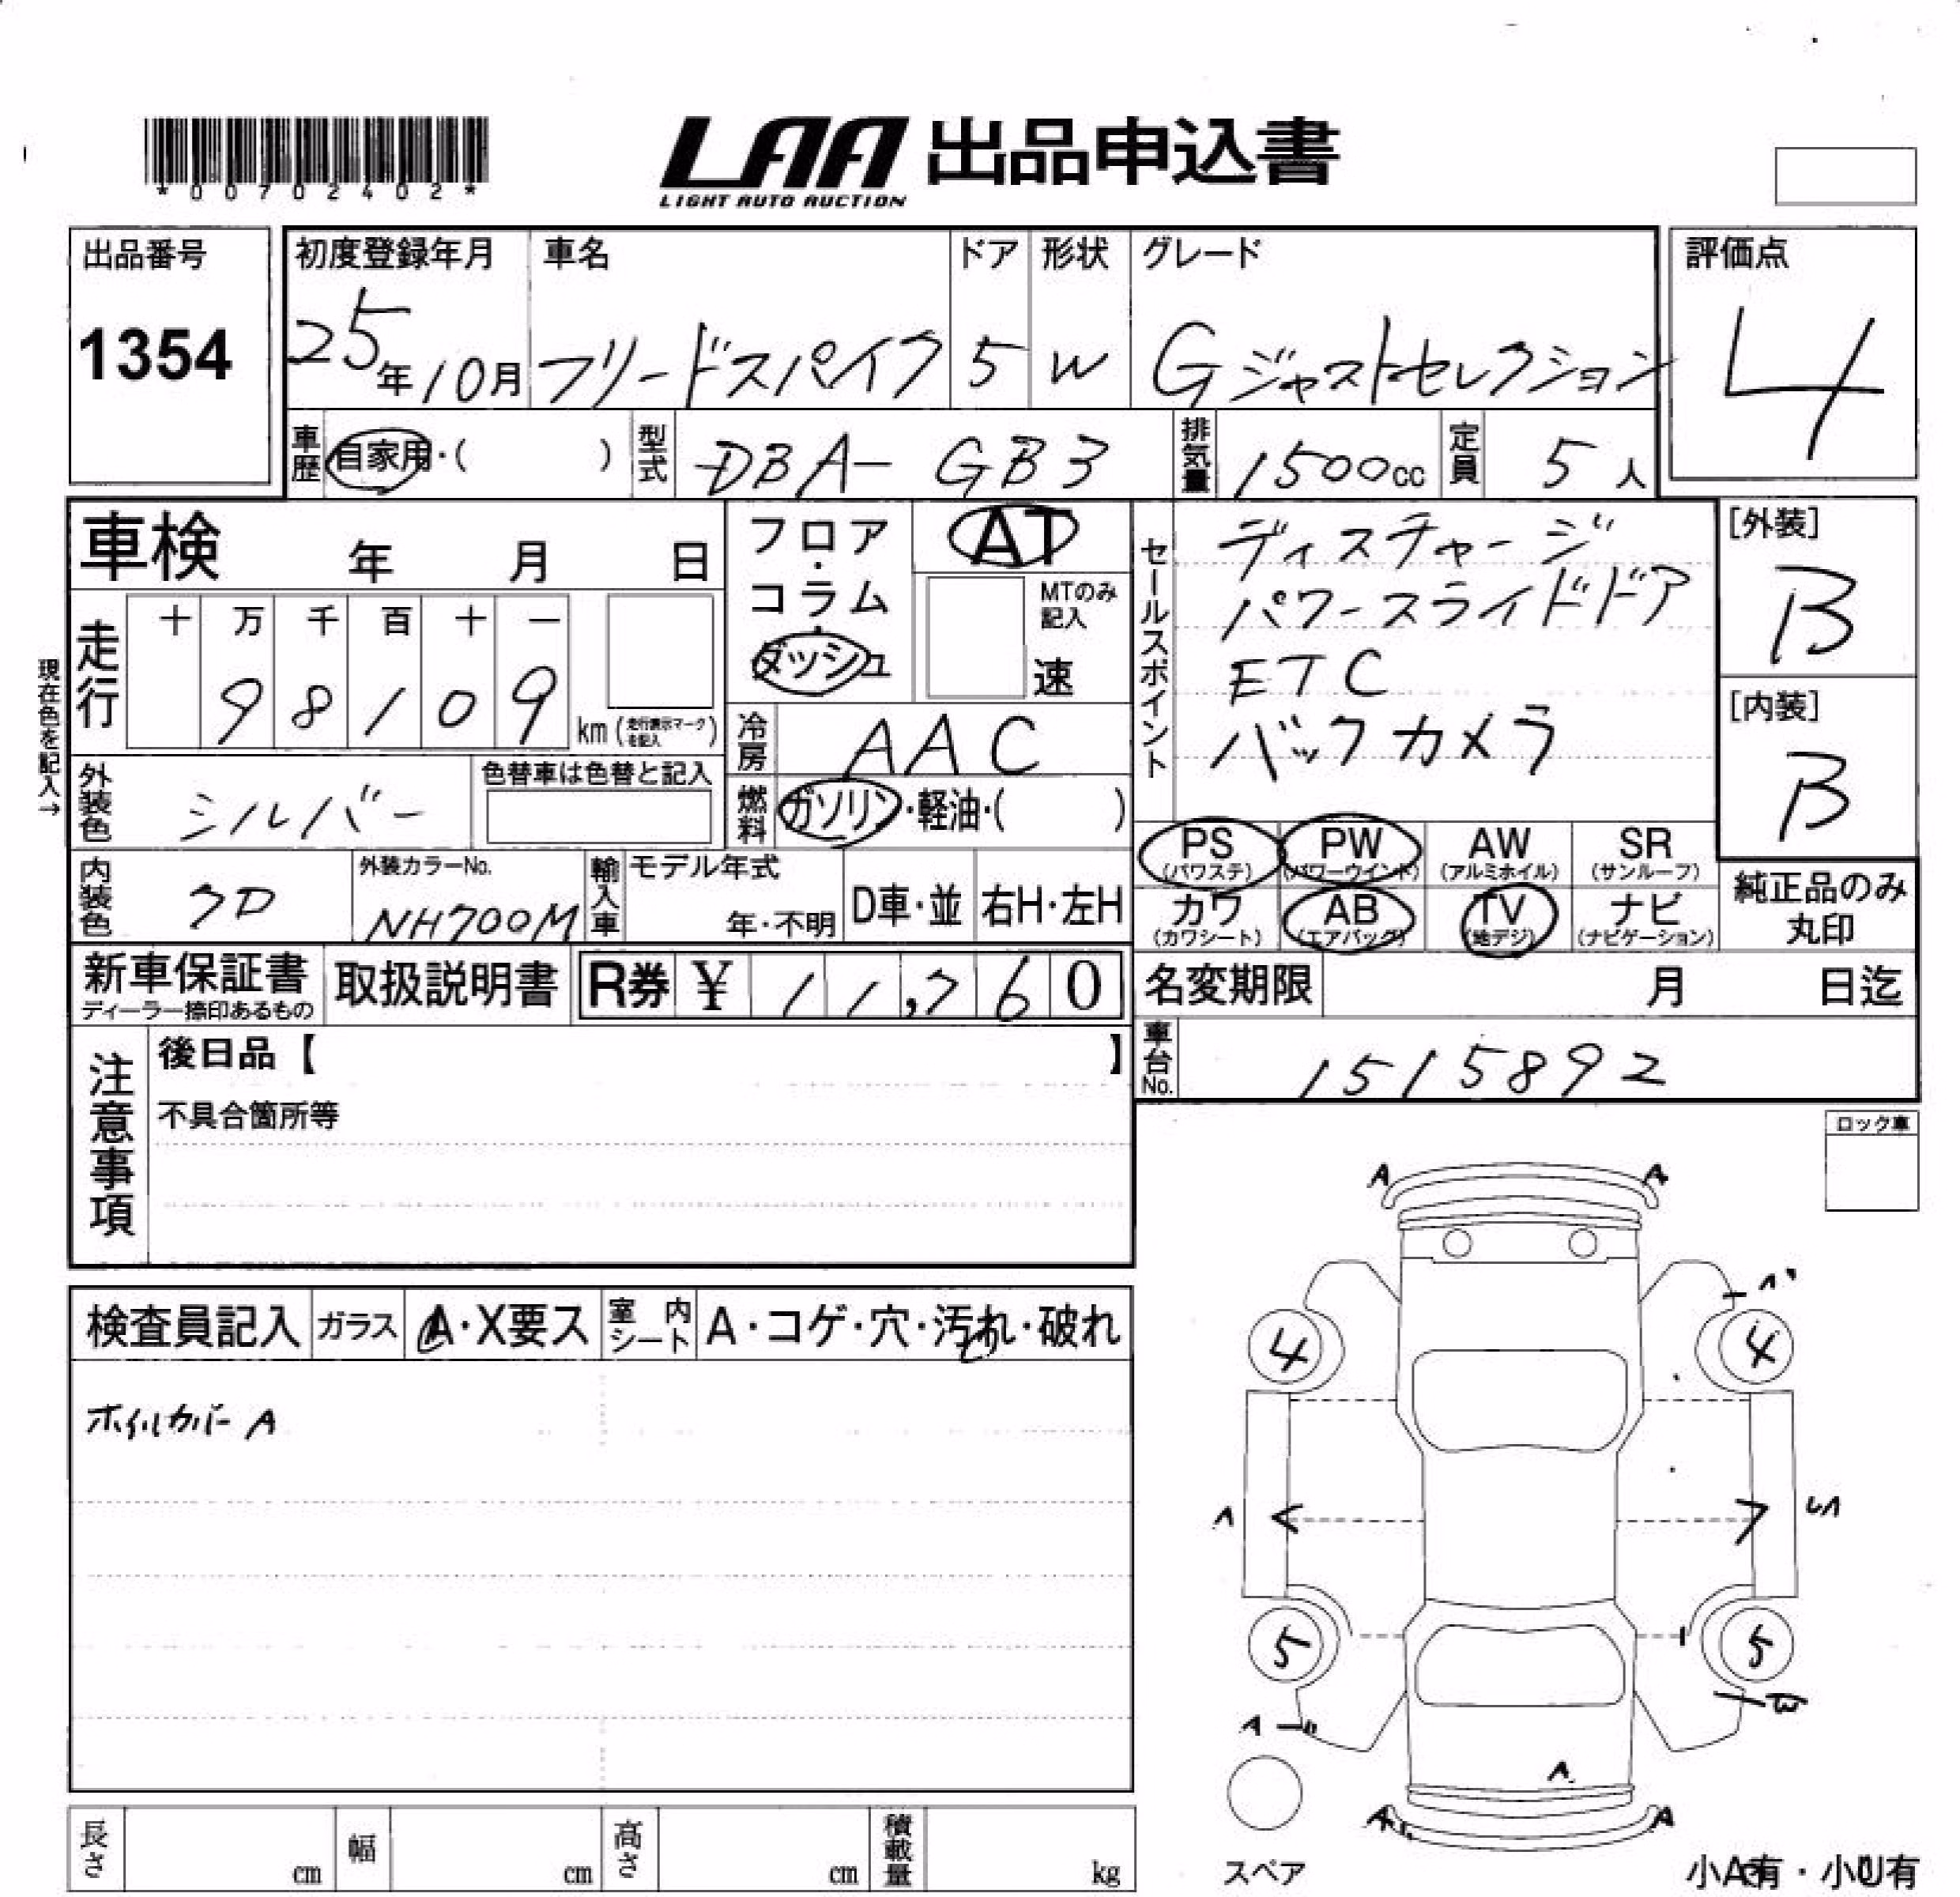 *00702402*
LAA 出品申込書
LIGHT AUTO AUCTION
出品番号
1354
初度登録年月
25年10月
車名
フリードスパイク
ドア
5
形状
W
グレード
Gジャストセレクション
評価点
4
車歴
自家用・( )
型式
DBA-GB3
排気量
1500cc
定員
5人
車検 年 月 日
フロア・
コラム・
ダッシュ
AT
MTのみ
記入
速
セールスポイント
ディスチャージ
パワースライドドア
ETC
バックカメラ
[外装]
B
[内装]
B
現在色を記入→
走行
十 万 千 百 十 一
98109
km(走行表示マークを記入)
冷房
AAC
外装色
シルバー
色替車は色替と記入
燃料
ガソリン・軽油・( )
PS
(パワステ)
PW
(パワーウインド)
AW
(アルミホイル)
SR
(サンルーフ)
内装色
クロ
外装カラーNo.
NH700M
輸入車
モデル年式
年・不明
D車・並
右H・左H
カワ
(カワシート)
AB
(エアバッグ)
TV
(地デジ)
ナビ
(ナビゲーション)
純正品のみ
丸印
新車保証書
ディーラー捺印あるもの
取扱説明書
R券 ¥ 11,760
名変期限 月 日迄
注意事項
後日品【 】
不具合箇所等
車台No.
1515892
ロック車
検査員記入
ガラス
A・X要ス
室内シート
A・コゲ・穴・汚れ・破れ
ホイルカバー A
A A
4 4
5 5
A
A
A A
スペア
長さ cm
幅 cm
高さ cm
積載量 kg
小A有・小U有